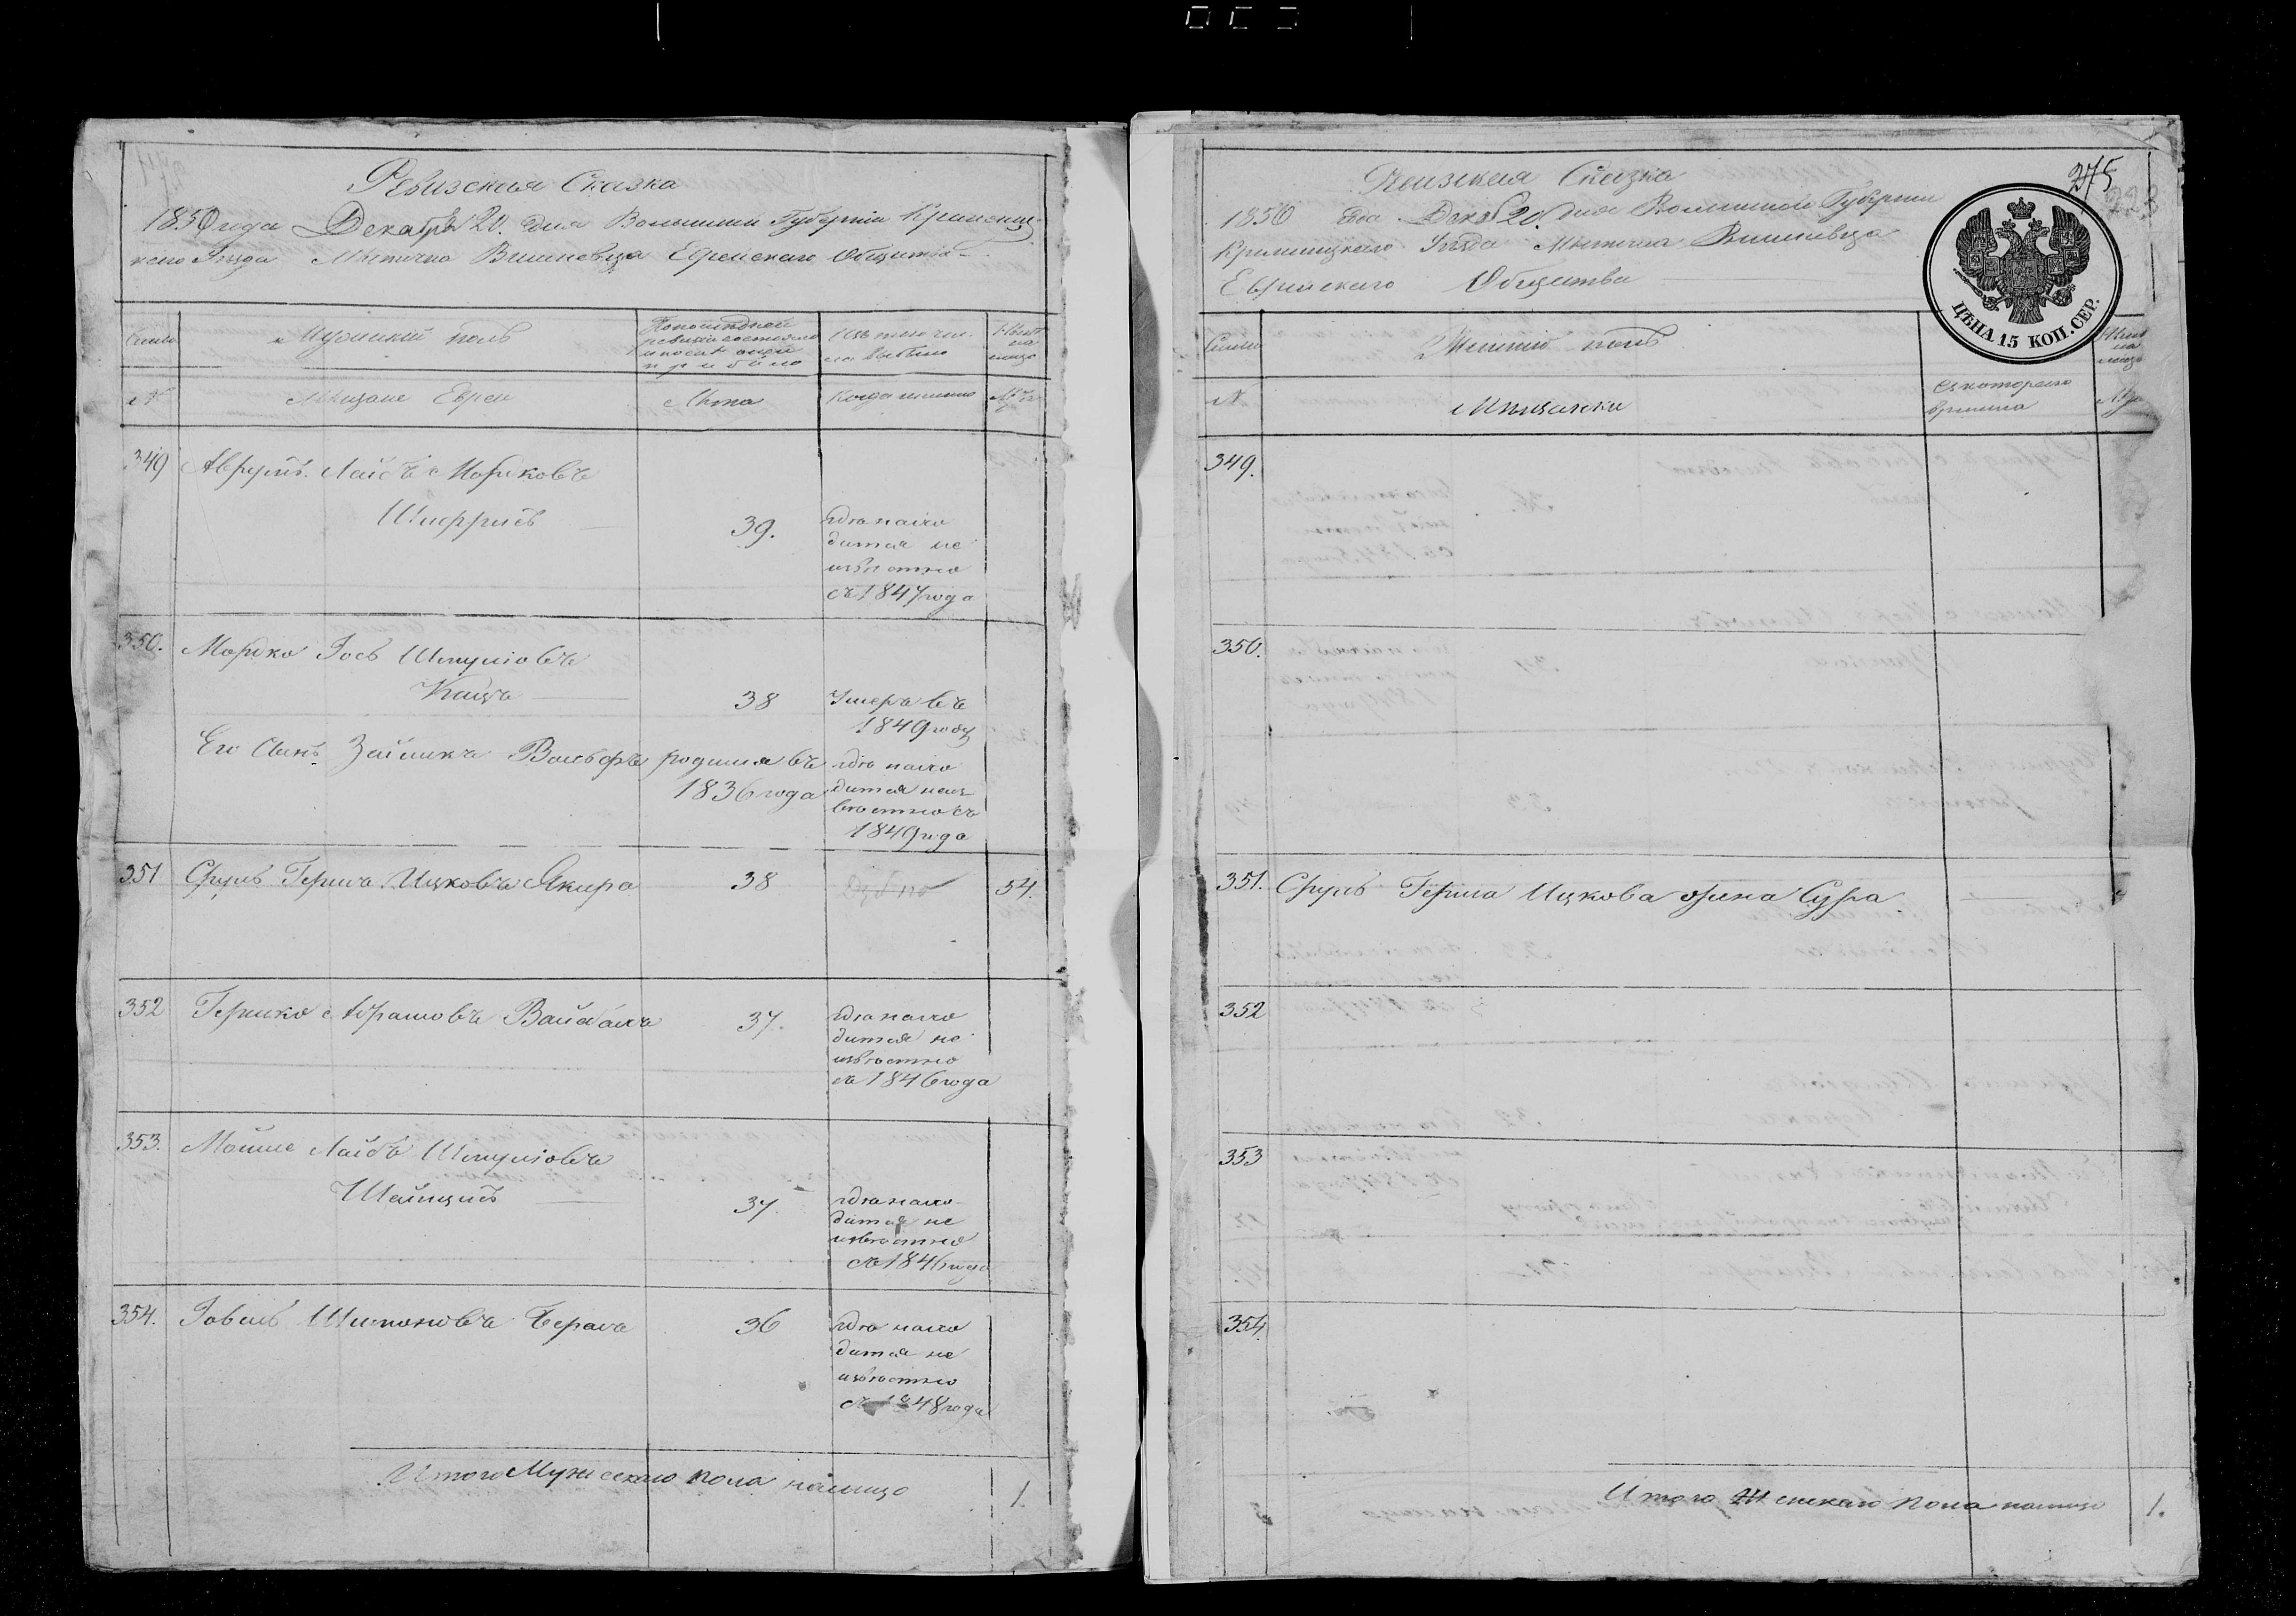 Ревизская Сказка
1850 года Декабря 20. дня Волынской Губернии Кременец-
каго Уѣзда Мѣстечка Вишневца Еврейскаго Общества
Семьи
Мужеский полъ
По последней
ревизіи состояло
и после оной
прибыло
Изъ того числа
выбыло
Нынѣ
на
лицо
№
Мѣщане Евреи
Лѣта
Когда именно
Лѣта
349 Аврумъ Лейбъ Мошковъ
39. гдѣ нахо
дится не
извѣстно
съ 1847 года
350. Мордко Іось Шмулювъ
Кацъ 38 Умеръ въ
1849 году
Его Сынъ Зейликъ Вольфъ родился въ гдѣ нахо
1836 года дится неиз
вѣстно съ
1849 года
351 Сруль Гершъ Ицковъ Якира 38 54.
352 Гершко Абрамовъ 37. гдѣ нахо
дится не
извѣстно
съ 1846 года
353. Мойше Лейбъ Шмулювъ
37 гдѣ нахо
дится не
извѣстно
съ 1846 года
354. Іовель Шимоновъ 36 гдѣ нахо
дится не
извѣстно
съ 1848 года
Итого Мужескаго пола налицо 1.
275
Ревизская Сказка
1850 года Декаб 20. дня Волынской Губернии
Кременецкаго Уѣзда Мѣстечка Вишневца
Еврейскаго Общества
ЦѢНА 15 КОП. СЕР.
Семьи
Женский полъ
Нынѣ
на
лицо
№
Мѣщанки
Съ котораго
времени
Лѣта
349.
350.
351. Сруль Герша Ицкова жена Сура
352
353
354.
Итого Женскаго пола налицо 1.